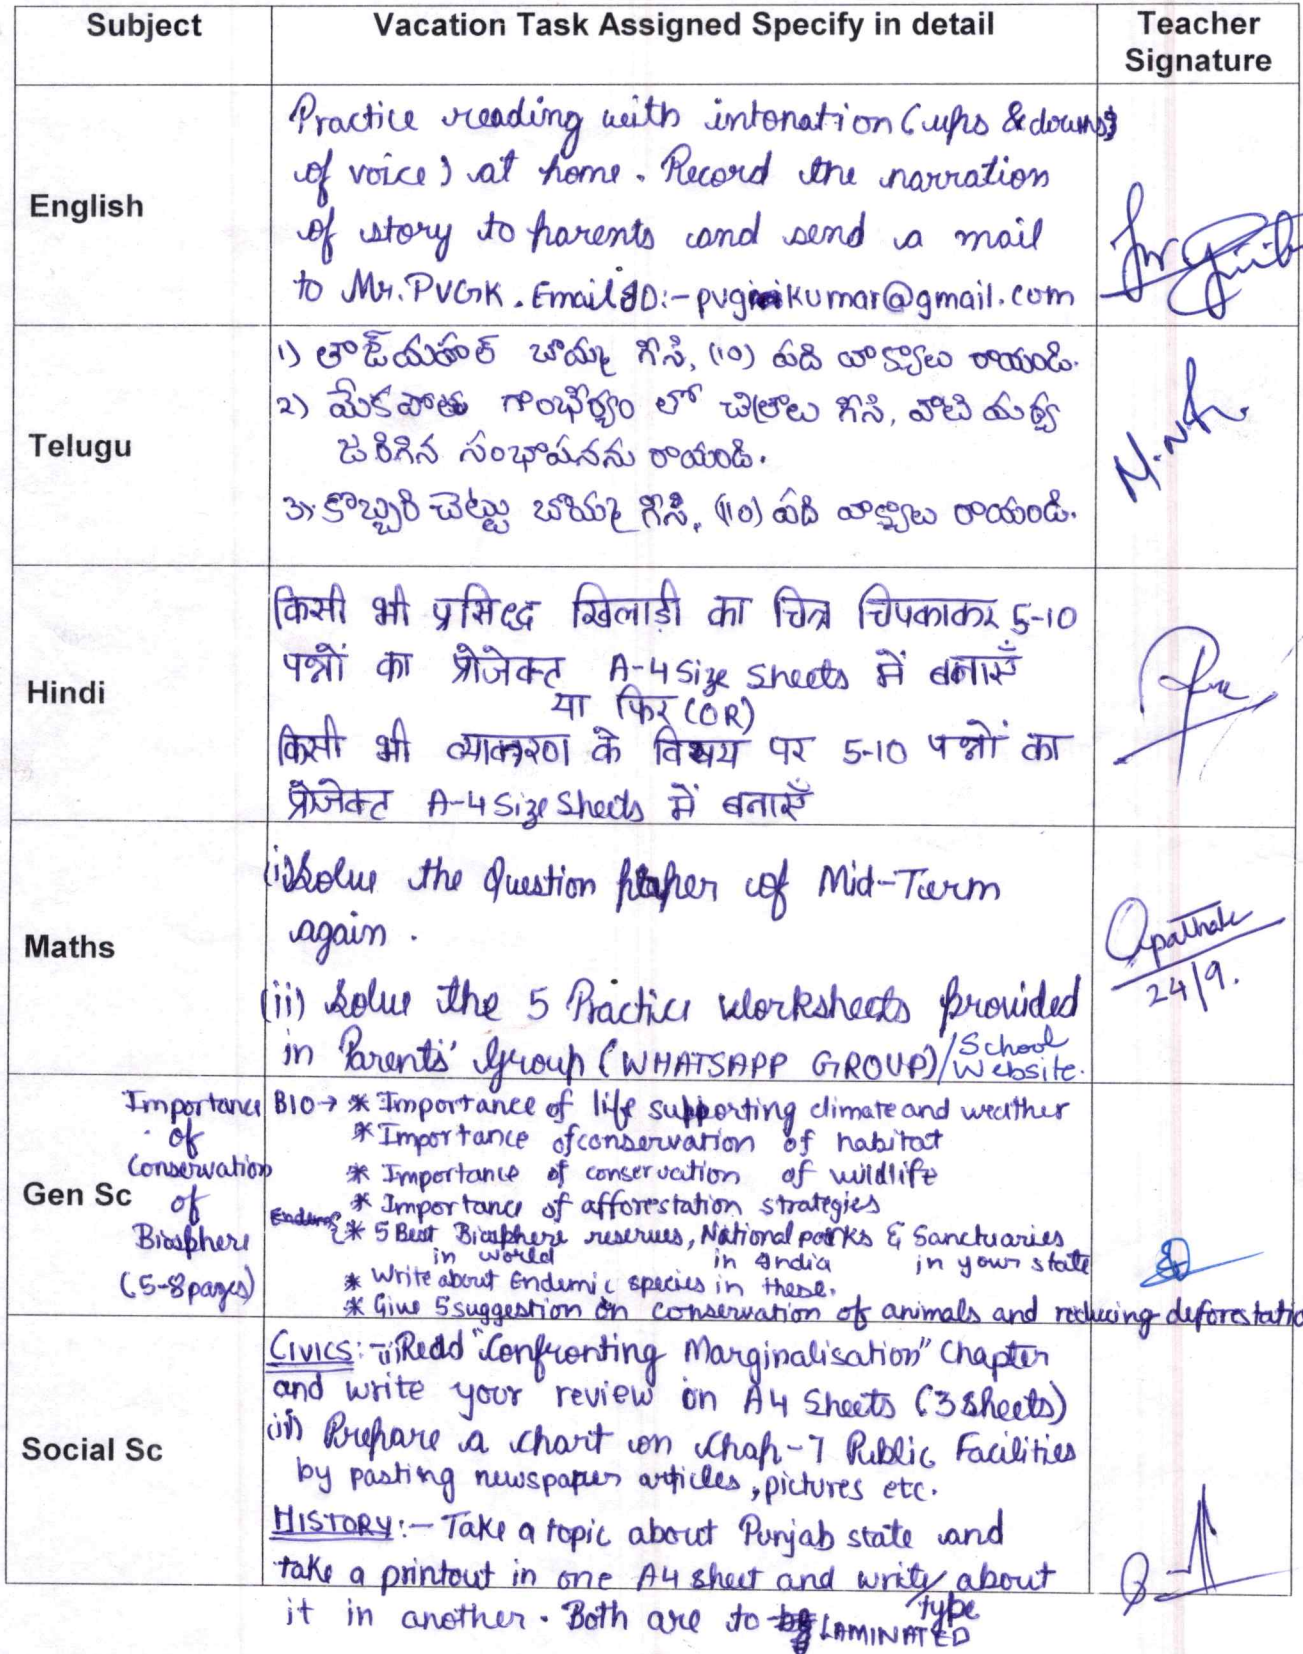 Subject
Vacation Task Assigned Specify in detail
Teacher
Signature
English
Practice reading with intonation (ups & downs
of voice) at home. Record the narration
of story to parents and send a mail
to Mr. PVGK. Email ID:- pvgkumar@gmail.com
Telugu
1) తాజ్ మహల్ బొమ్మ గీసి, (10) పది వాక్యాలు రాయండి.
2) మేకపోతు గాంభీర్యం లో చిత్రాలు గీసి, వాటి మధ్య
జరిగిన సంభాషనను రాయండి.
3) కొబ్బరి చెట్టు బొమ్మ గీసి, (10) పది వాక్యాలు రాయండి.
Hindi
किसी भी प्रसिद्ध खिलाड़ी का चित्र चिपकाकर 5-10
पन्नों का प्रोजेक्ट A-4 Size Sheets में बनाएँ
या फिर (OR)
किसी भी व्याकरण के विषय पर 5-10 पन्नों का
प्रोजेक्ट A-4 Size Sheets में बनाएँ
Maths
(i) Solve the Question paper of Mid-Term
again.
(ii) Solve the 5 Practice Worksheets provided
in Parents' Group (WHATSAPP GROUP)/School
Website.
24/9.
Gen Sc
Importance
of
Conservation
of
Biosphere
(5-8 pages)
BIO → * Importance of life supporting climate and weather
* Importance of conservation of habitat
* Importance of conservation of wildlife
* Importance of afforestation strategies
* 5 Best Biosphere reserves, National parks & Sanctuaries
in world in India in your state
* Write about Endemic species in these.
* Give 5 suggestion on conservation of animals and reducing deforestatio
Social Sc
CIVICS:- (i) Read "Confronting Marginalisation" Chapter
and write your review on A4 Sheets (3 sheets)
(ii) Prepare a chart on Chap-7 Public Facilities
by pasting newspaper articles, pictures etc.
HISTORY:- Take a topic about Punjab state and
take a printout in one A4 sheet and write/type about
it in another. Both are to be LAMINATED